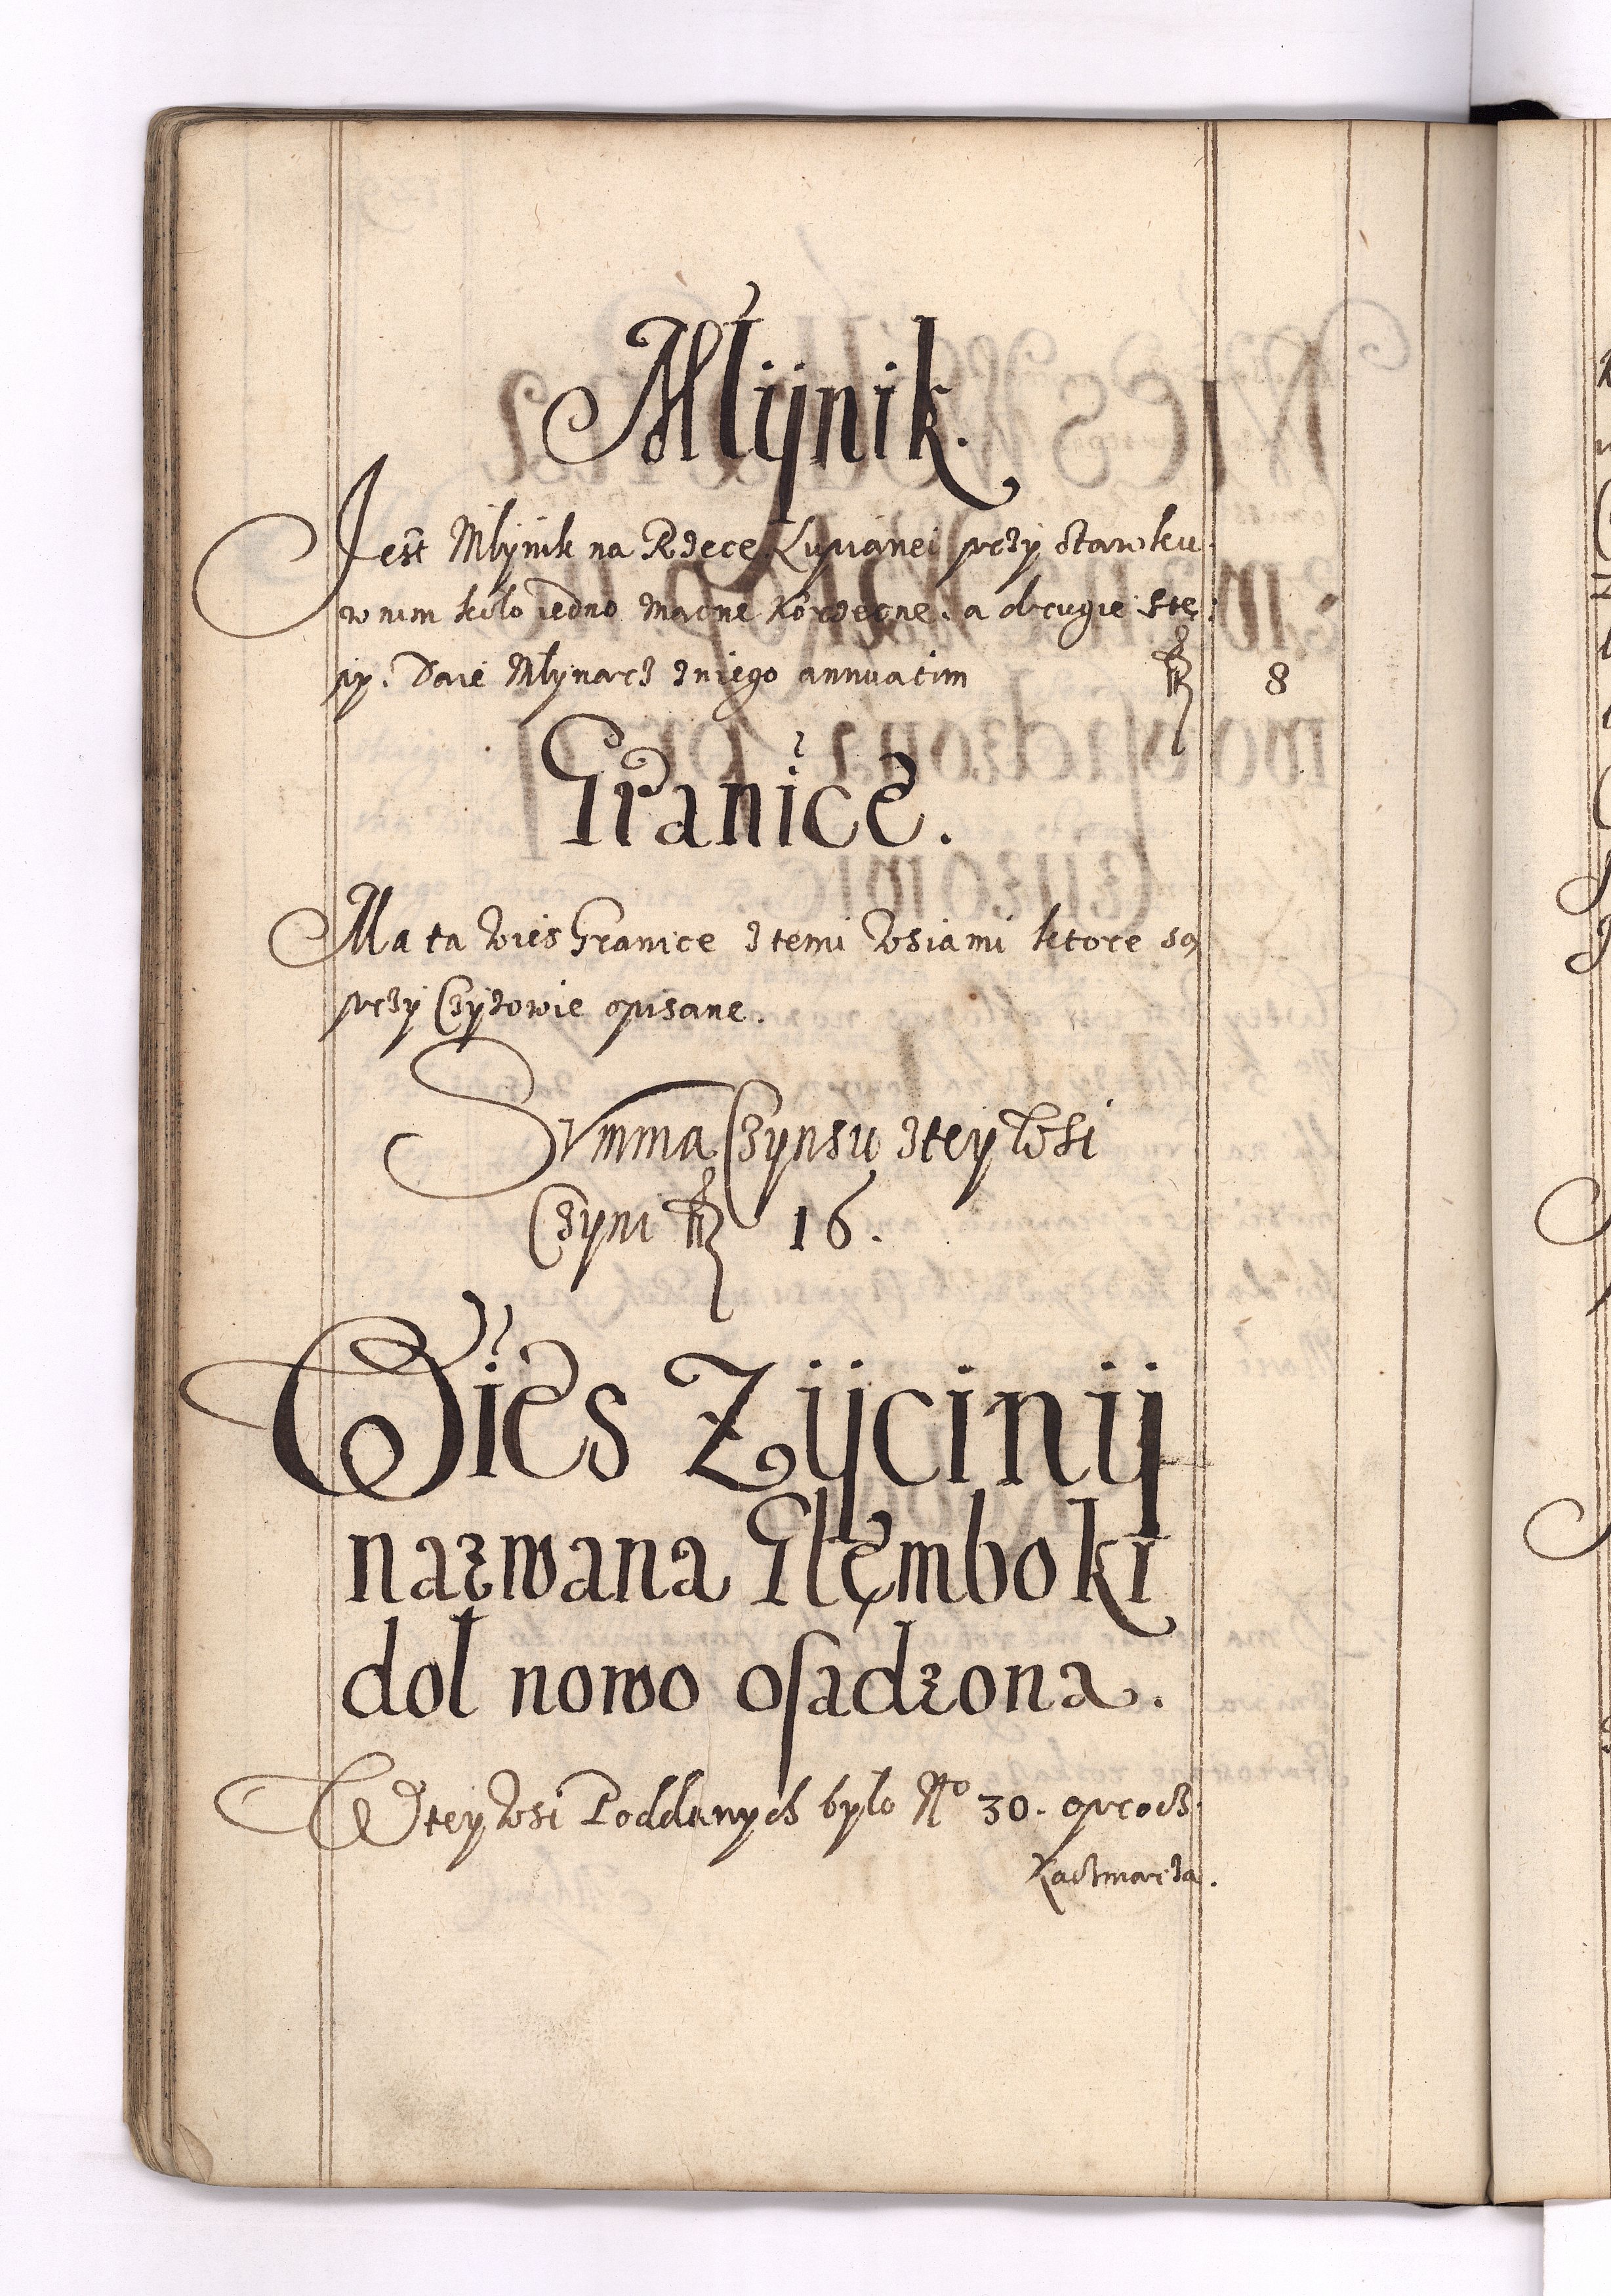 Młÿnik.
Jest Młÿnik na Rzece Łupianei przÿ stawku
w nim koło iedno macne Korzecne, a drugie stę:
py. Daie Młÿnarz zniego annuatim fl 8
Granice.
Ma ta Wies Granice z temi Wsiami ktore są
przÿ Czÿzowie opisane.
Summa Czÿnsu zteÿ Wsi
Czÿni fl 16.
Wies Zÿcinÿ
nazwana Głęmboki
doł nowo osadzona.
W teÿ Wsi Poddanÿch bÿło No 30. procz
Kaczmarza.